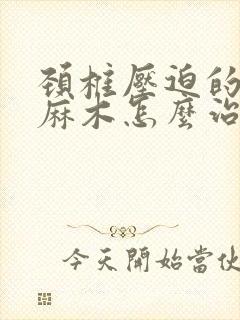 頸椎壓迫的
麻木怎麼治
今天開始當伙